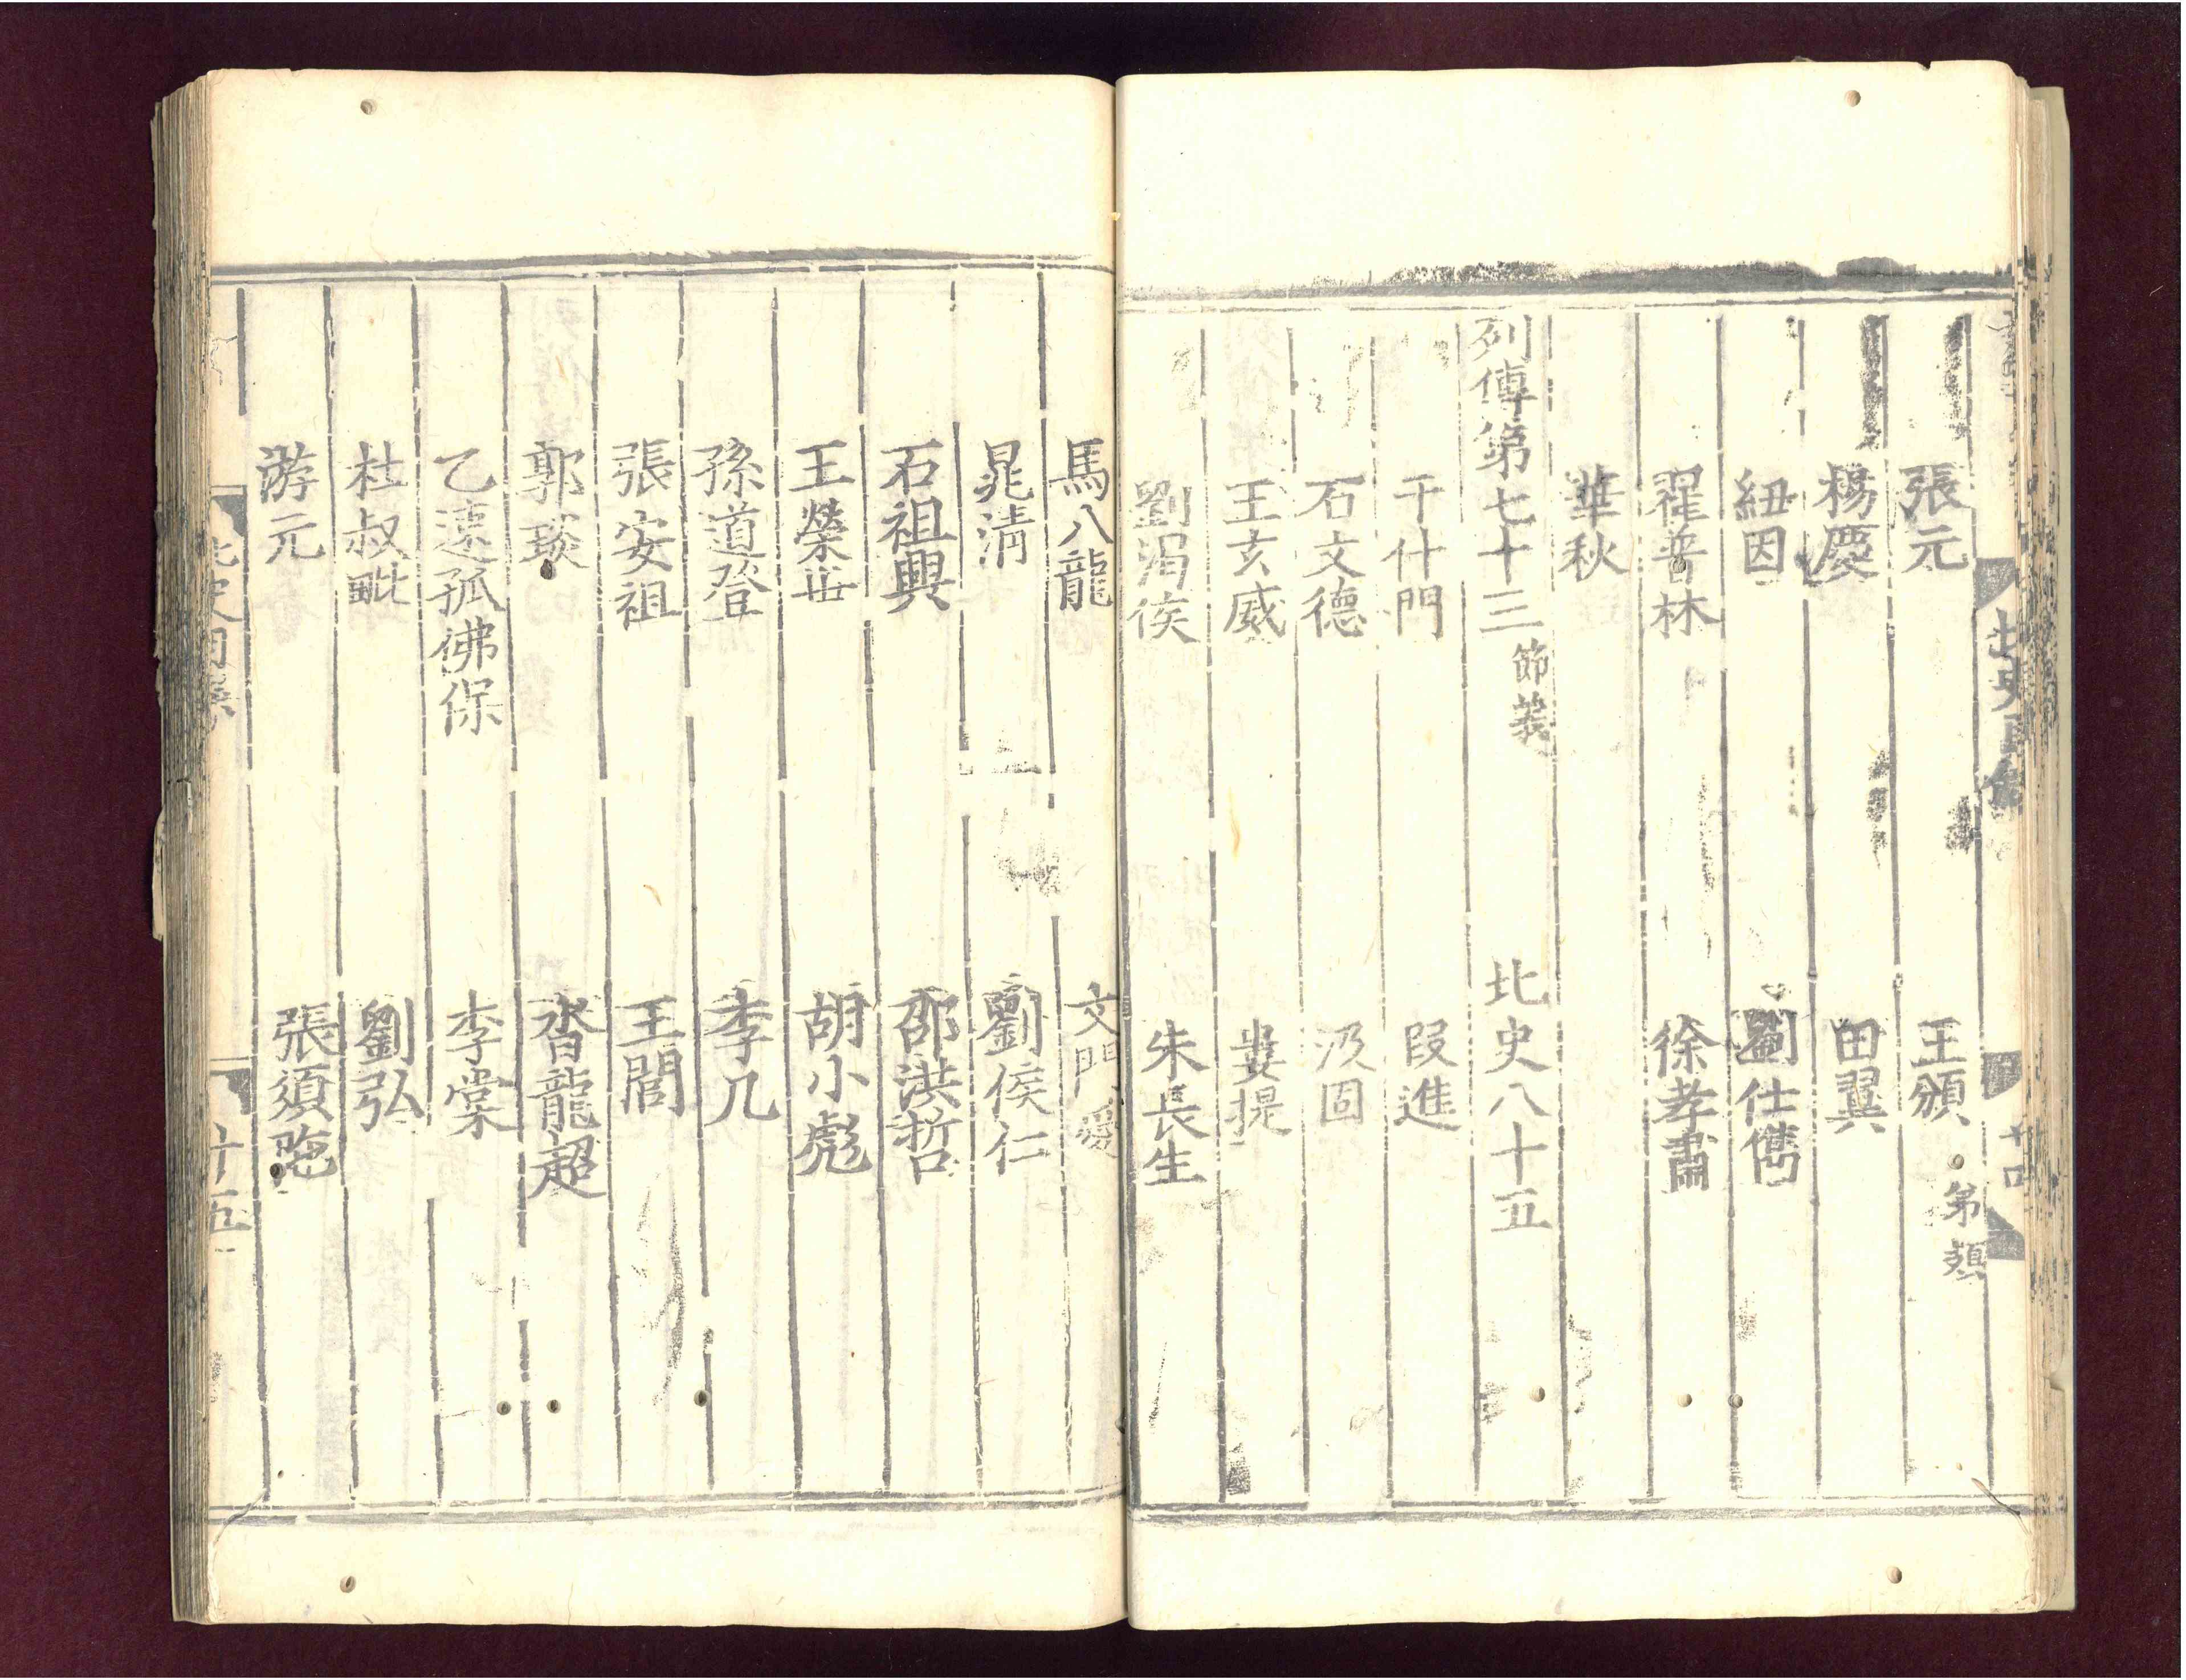 張元 王頒 弟頍
楊慶 田翼
紐因 劉仕儁
翟普林 徐孝肅
華秋
列傳第七十三 節義 北史八十五
于什門 段進
石文德 汲固
王玄威 婁提
劉渴侯 朱長生
馬八龍 文門愛
晁清 劉侯仁
石祖興 邵洪哲
王榮世 胡小彪
孫道登 李几
張安祖 王閭
郭琰 沓龍超
乙速孤佛保 李棠
杜叔毗 劉弘
游元 張須陁
北史目錄 十五